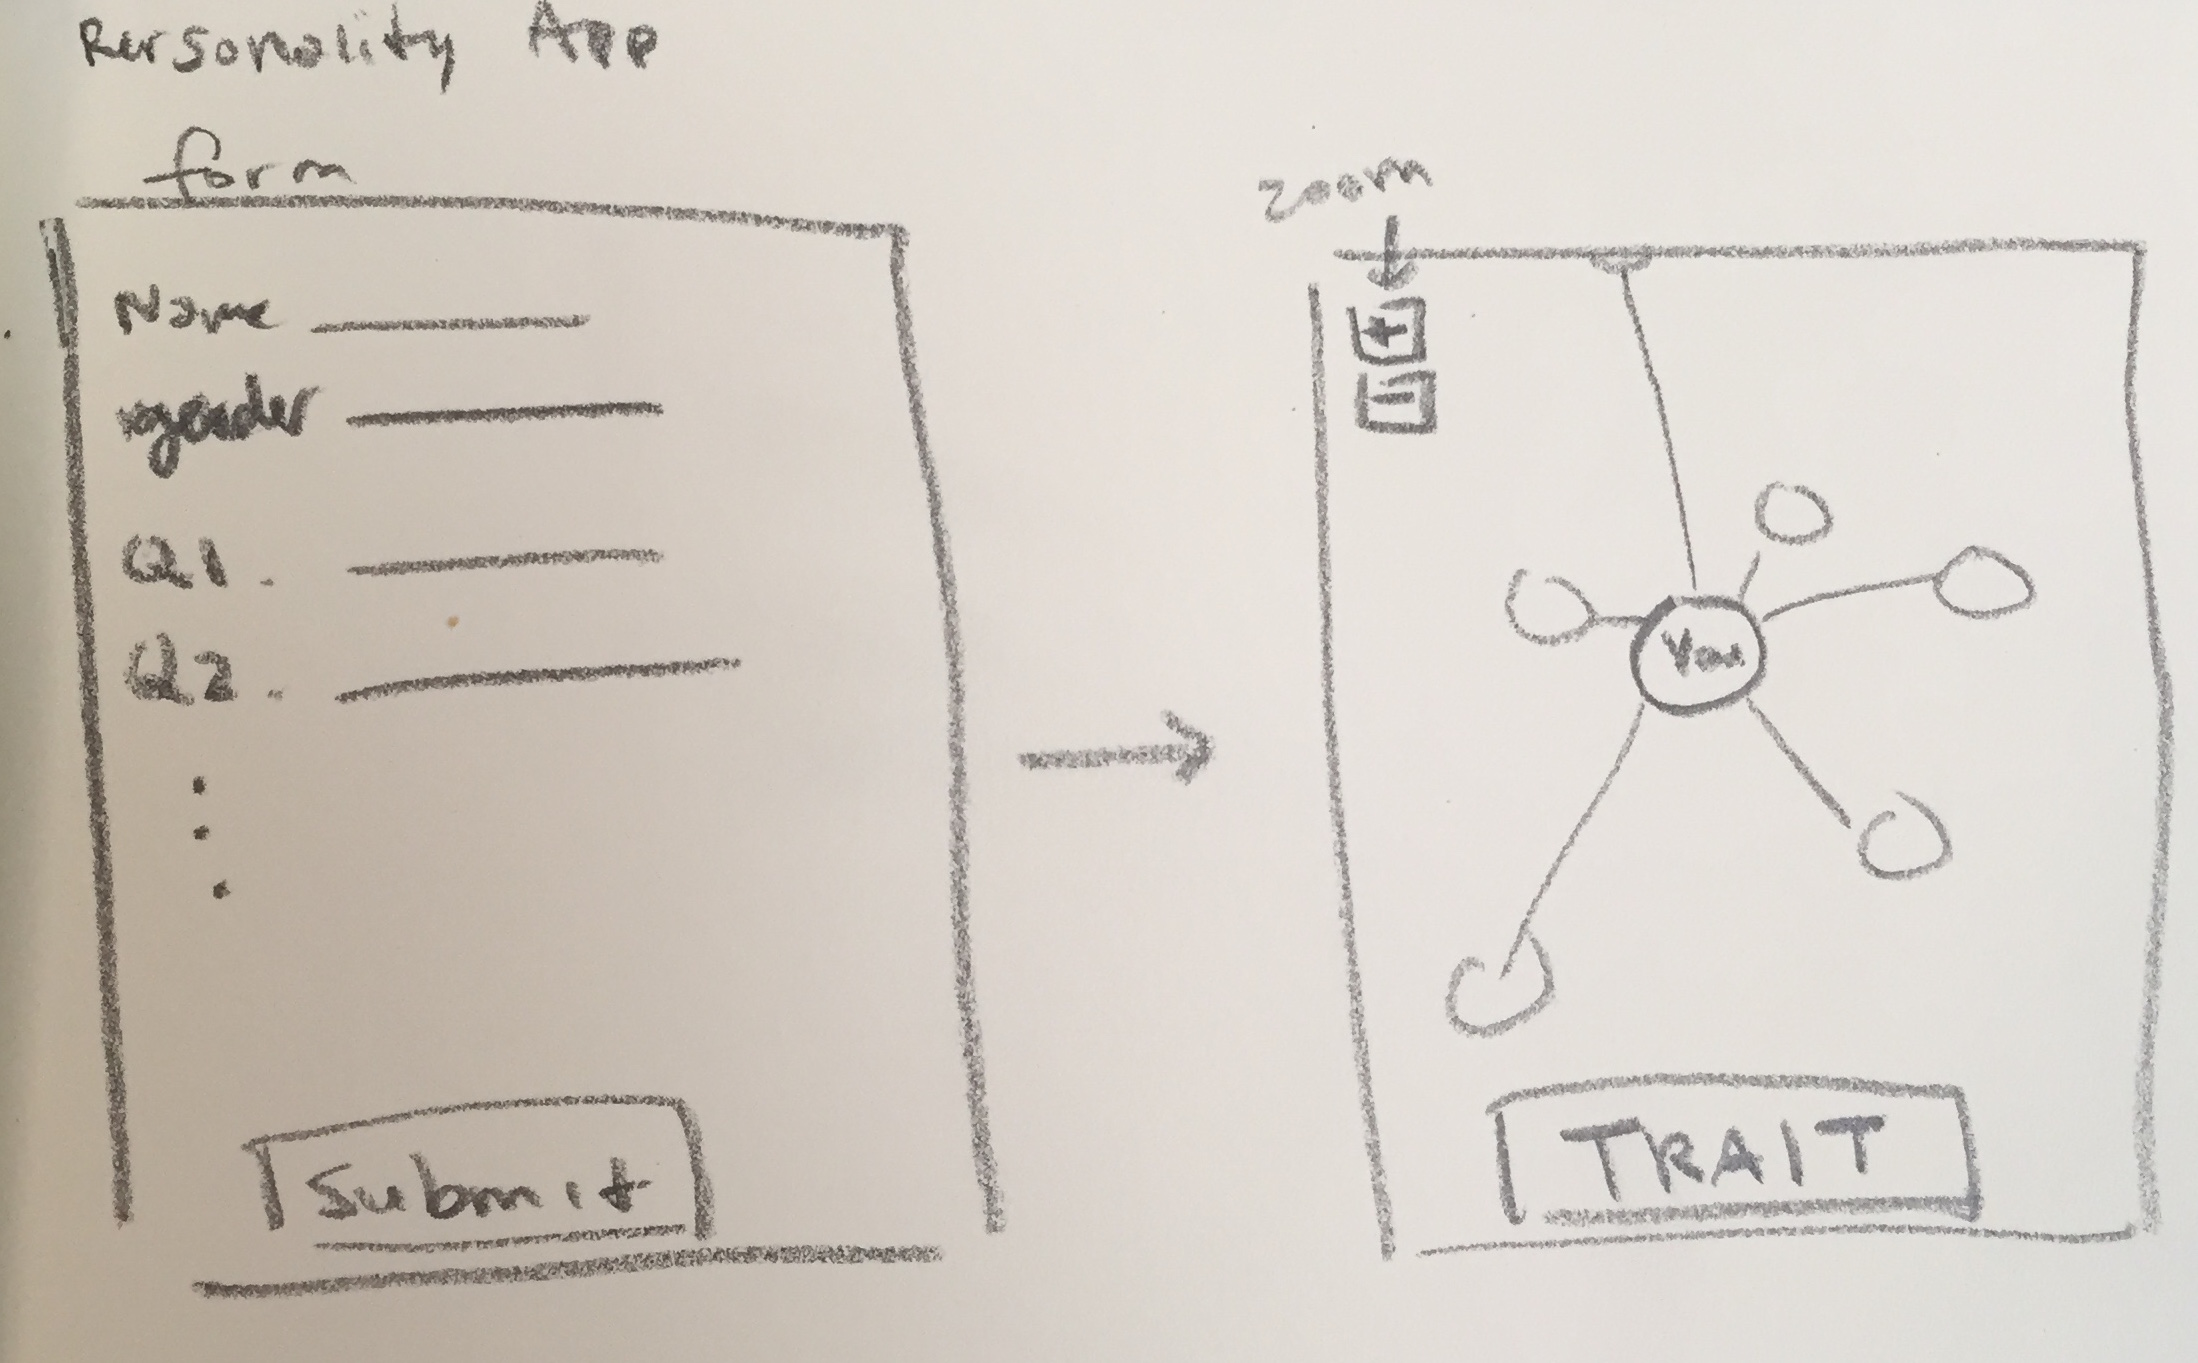 Personality App
form
Name
gender
Q1.
Q2.
Submit
zoom
+
-
You
TRAIT